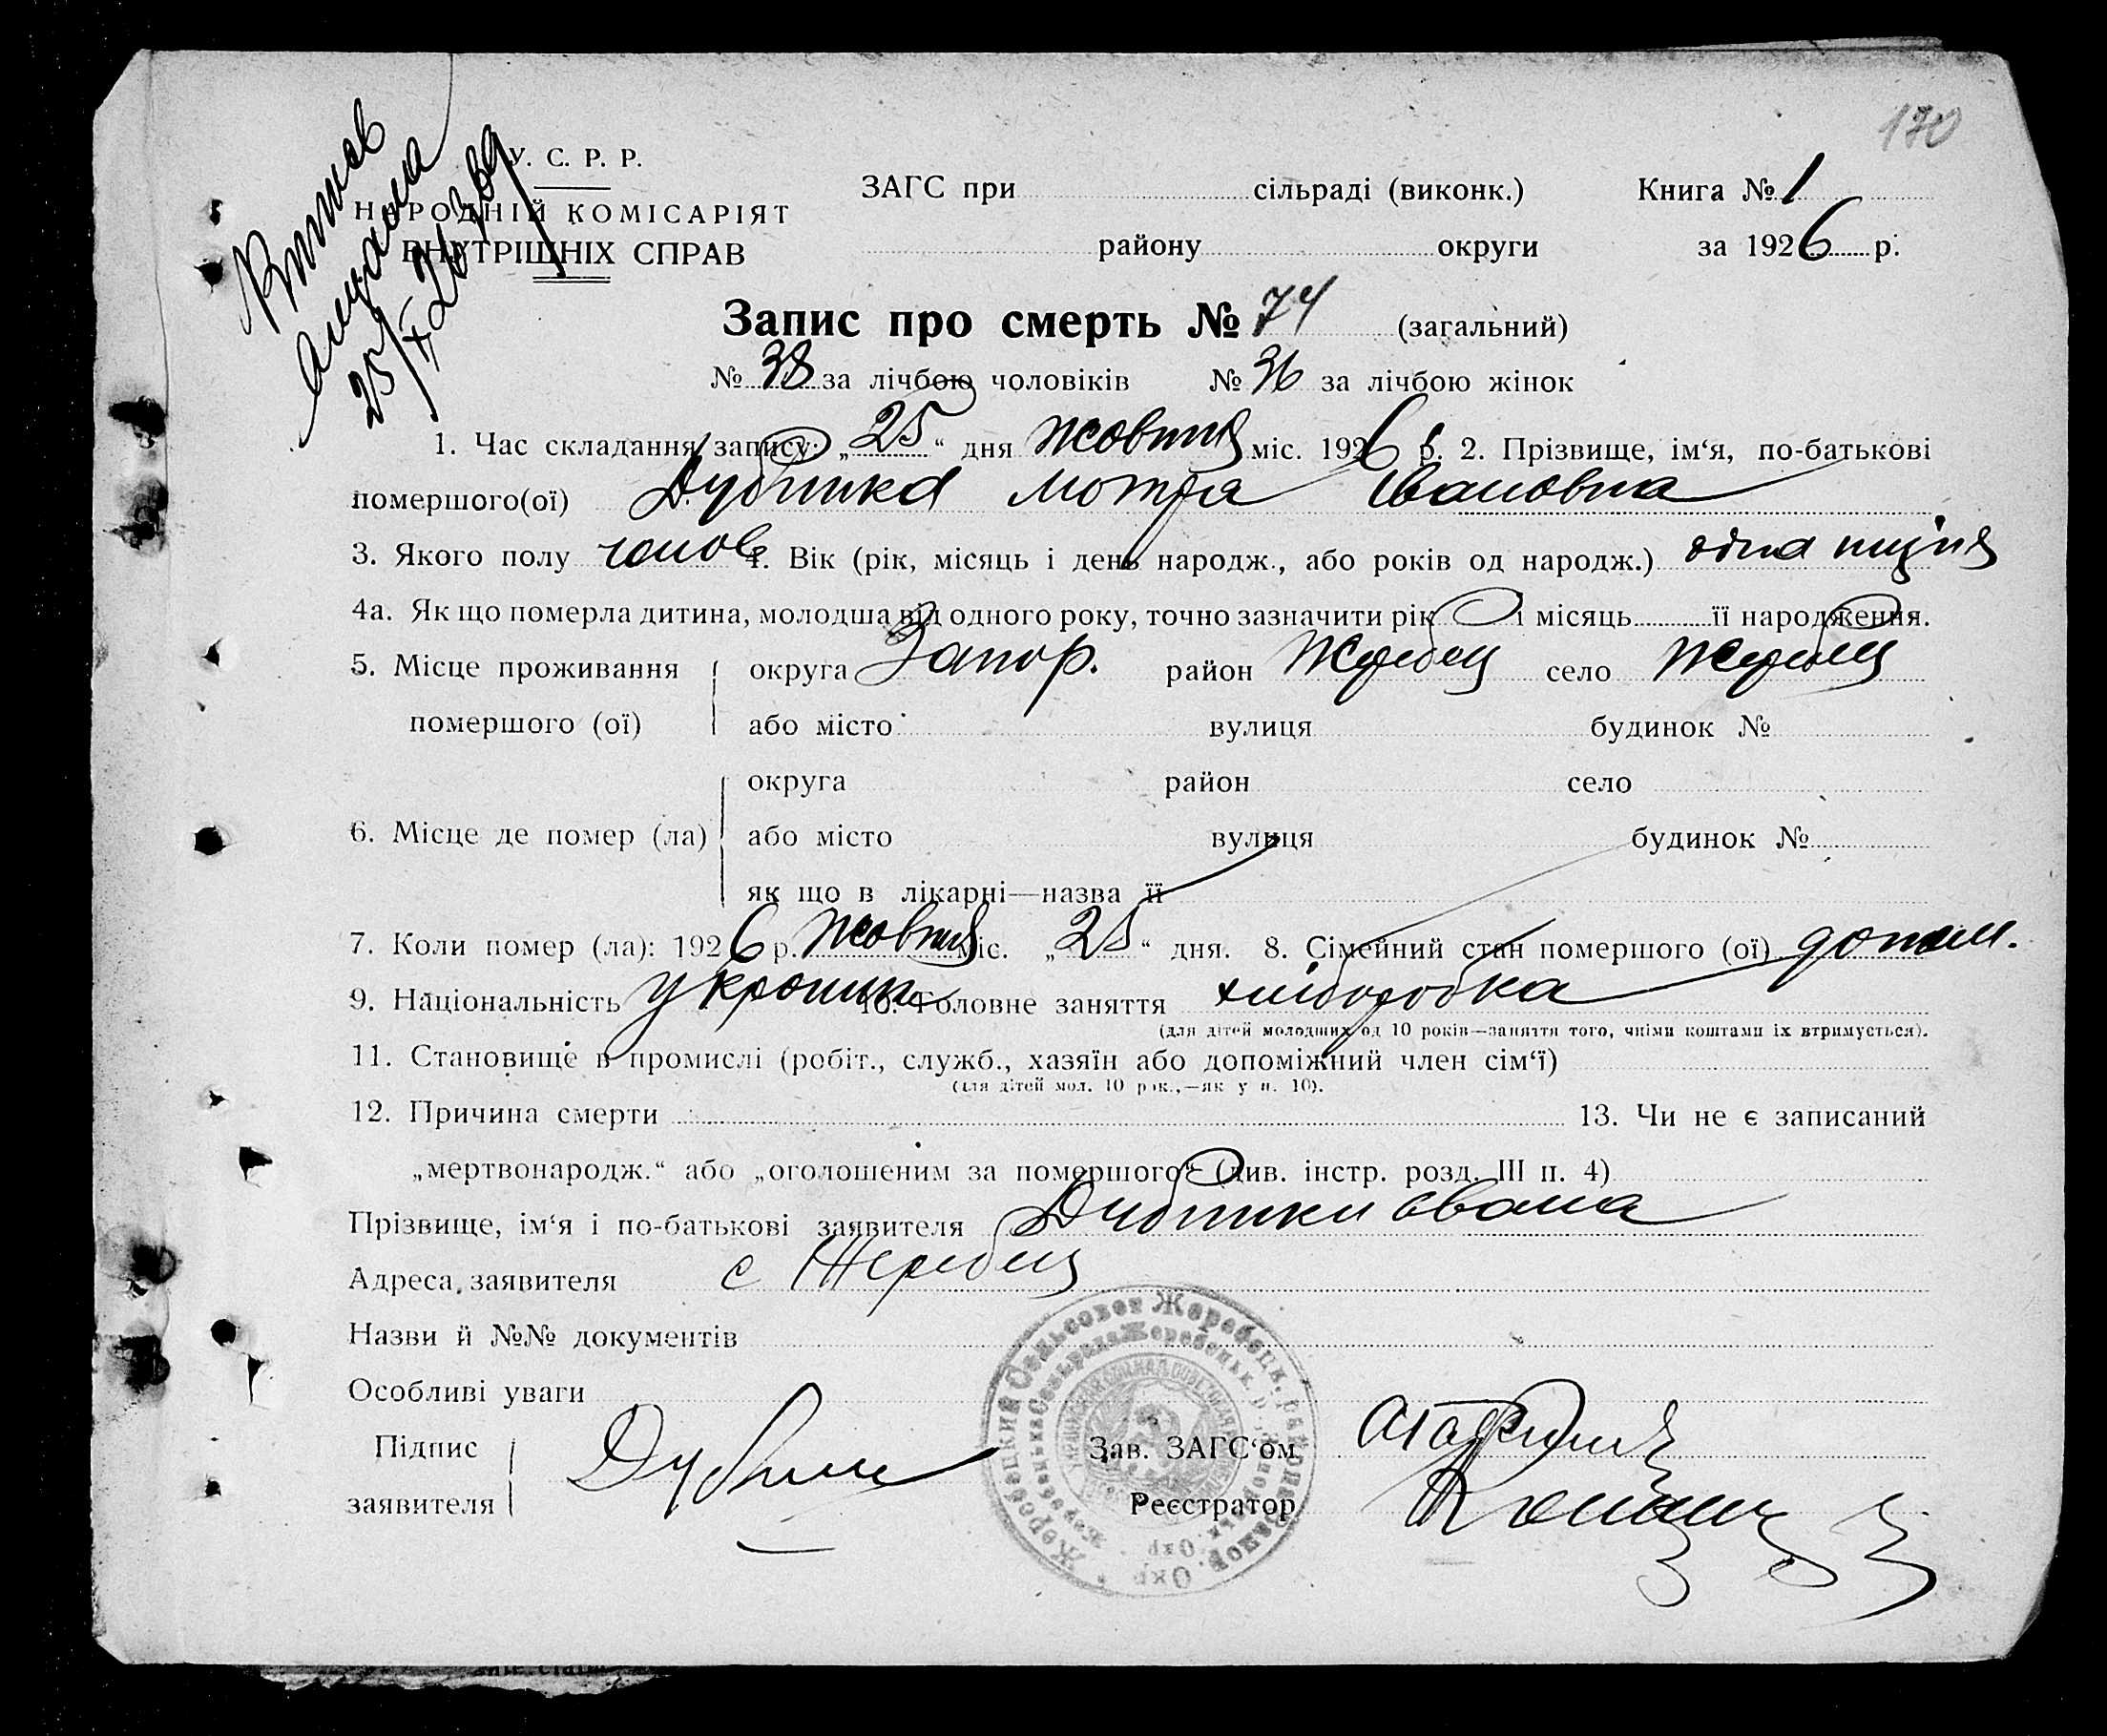 170
У. С. Р. Р.
НАРОДНІЙ КОМІСАРІЯТ
ВНУТРІШНІХ СПРАВ
ЗАГС при сільраді (виконк.)
району округи
Книга № 1
за 1926 р.
25/X 26
Запис про смерть № 74 (загальний)
№ 38 за лічбою чоловіків № 36 за лічбою жінок
1. Час складання запису: „25“ дня жовтня міс. 1926 р. 2. Прізвище, ім‘я, по-батькові
помершого(ої) Мотра Івановна
3. Якого полу 4. Вік (рік, місяць і день народж., або років од народж.)
4а. Як що померла дитина, молодша від одного року, точно зазначити рік і місяць її народження.
5. Місце проживання помершого (ої) округа Запор. район Жеребец село Жеребец
або місто вулиця будинок №
6. Місце де помер (ла) округа район село
або місто вулиця будинок №
як що в лікарні—назва її
7. Коли помер (ла): 1926 р. жовтня міс. „25“ дня. 8. Сімейний стан помершого (ої)
9. Національність 10. Головне заняття хліборобка
(для дітей молодших од 10 років—заняття того, чиїми коштами їх втримується).
11. Становище в промислі (робіт., служб., хазяїн або допоміжний член сім‘ї)
(для дітей мол. 10 рок.,—як у п. 10).
12. Причина смерти 13. Чи не є записаний
„мертвонародж.“ або „оголошеним за помершого“ (див. інстр. розд. III п. 4)
Прізвище, ім‘я і по-батькові заявителя
Адреса заявителя с Жеребец
Назви й №№ документів
Особливі уваги
Підпис заявителя
Зав. ЗАГС‘ом
Реєстратор
Жеребецкий Сельсовет Жеребецк. района Запор. Окр